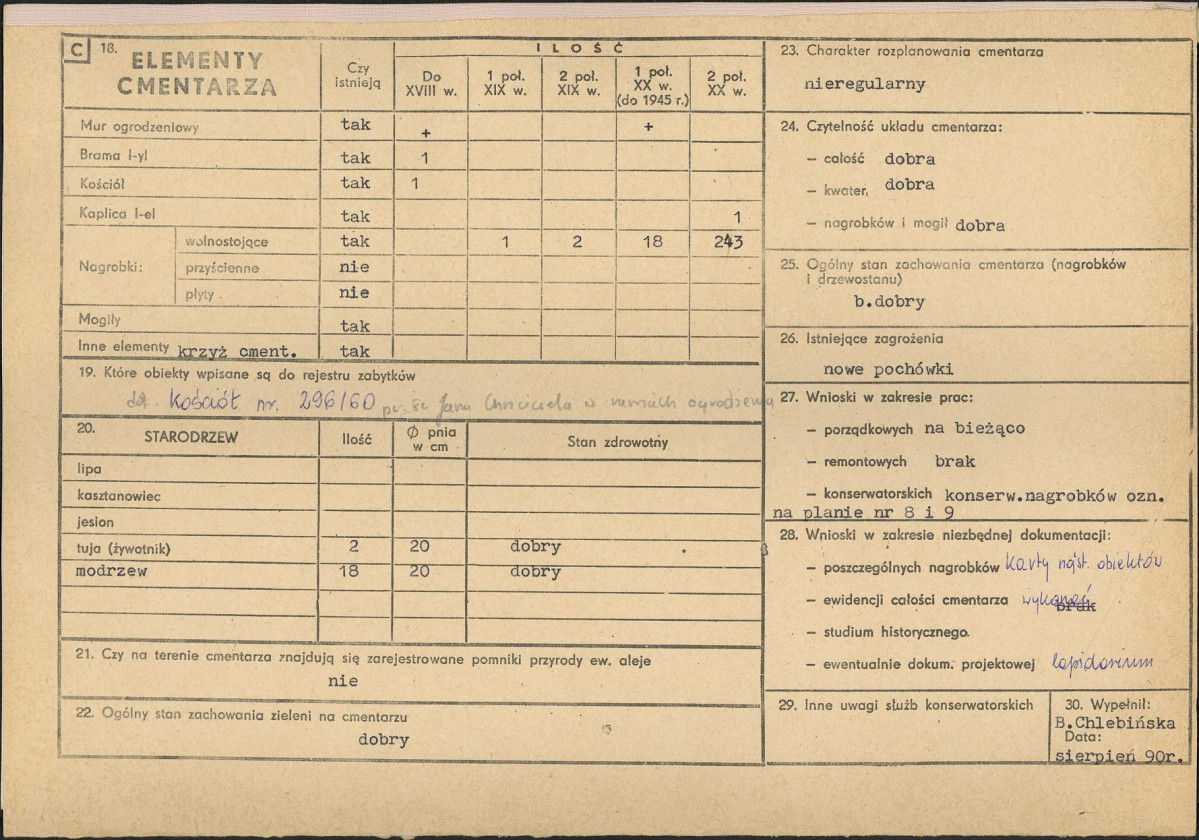 C 18. ELEMENTY CMENTARZA
Czy istnieją
ILOŚĆ
Do XVIII w.
1 poł. XIX w.
2 poł. XIX w.
1 poł. XX w. (do 1945 r.)
2 poł. XX w.
Mur ogrodzeniowy tak + +
Brama I-yl tak 1
Kościół tak 1
Kaplica I-el tak 1
Nagrobki: wolnostojące tak 1 2 18 243
przyścienne nie
płyty nie
Mogiły tak
Inne elementy krzyż cment. tak
19. Które obiekty wpisane są do rejestru zabytków
Kościół nr. 296/60 Jana Chrzciciela w ramach ogrodzenia
20. STARODRZEW Ilość Ø pnia w cm Stan zdrowotny
lipa
kasztanowiec
jesion
tuja (żywotnik) 2 20 dobry
modrzew 18 20 dobry
21. Czy na terenie cmentarza znajdują się zarejestrowane pomniki przyrody ew. aleje
nie
22. Ogólny stan zachowania zieleni na cmentarzu
dobry
23. Charakter rozplanowania cmentarza
nieregularny
24. Czytelność układu cmentarza:
– całość dobra
– kwater, dobra
– nagrobków i mogił dobra
25. Ogólny stan zachowania cmentarza (nagrobków
i drzewostanu)
b.dobry
26. Istniejące zagrożenia
nowe pochówki
27. Wnioski w zakresie prac:
– porządkowych na bieżąco
– remontowych brak
– konserwatorskich konserw.nagrobków ozn.
na planie nr 8 i 9
28. Wnioski w zakresie niezbędnej dokumentacji:
– poszczególnych nagrobków karty nast. obiektów
– ewidencji całości cmentarza wykonać brak
– studium historycznego.
– ewentualnie dokum. projektowej lapidarium
29. Inne uwagi służb konserwatorskich
30. Wypełnił:
B.Chlebińska
Data:
sierpień 90r.